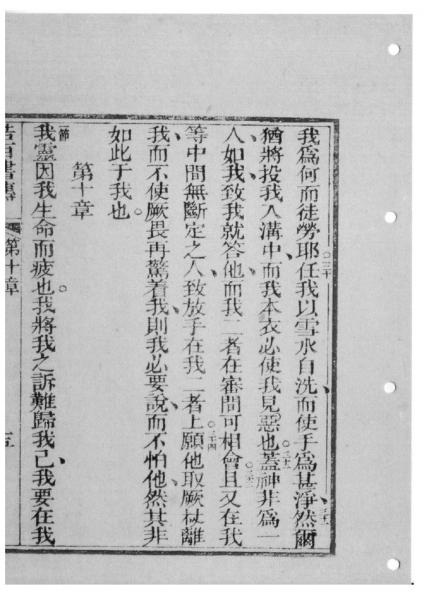 我爲何而徒勞耶○三十任我以雪水自洗、而使手爲甚淨、三一然爾
猶將投我入溝中、而我本衣必使我見惡也○三二蓋神非爲一
人如我、致我就答他、而我二者在審問可相會○三三且又在我
等中間無斷定之人、致放手在我二者上○三四願他取厥杖離
我、而不使厥畏再驚着我、則我必要說、而不怕他、然其非
如此于我也。
第十章
一節我靈因我生命而疲也。我將我之訴難歸我己、我要在我
第十章